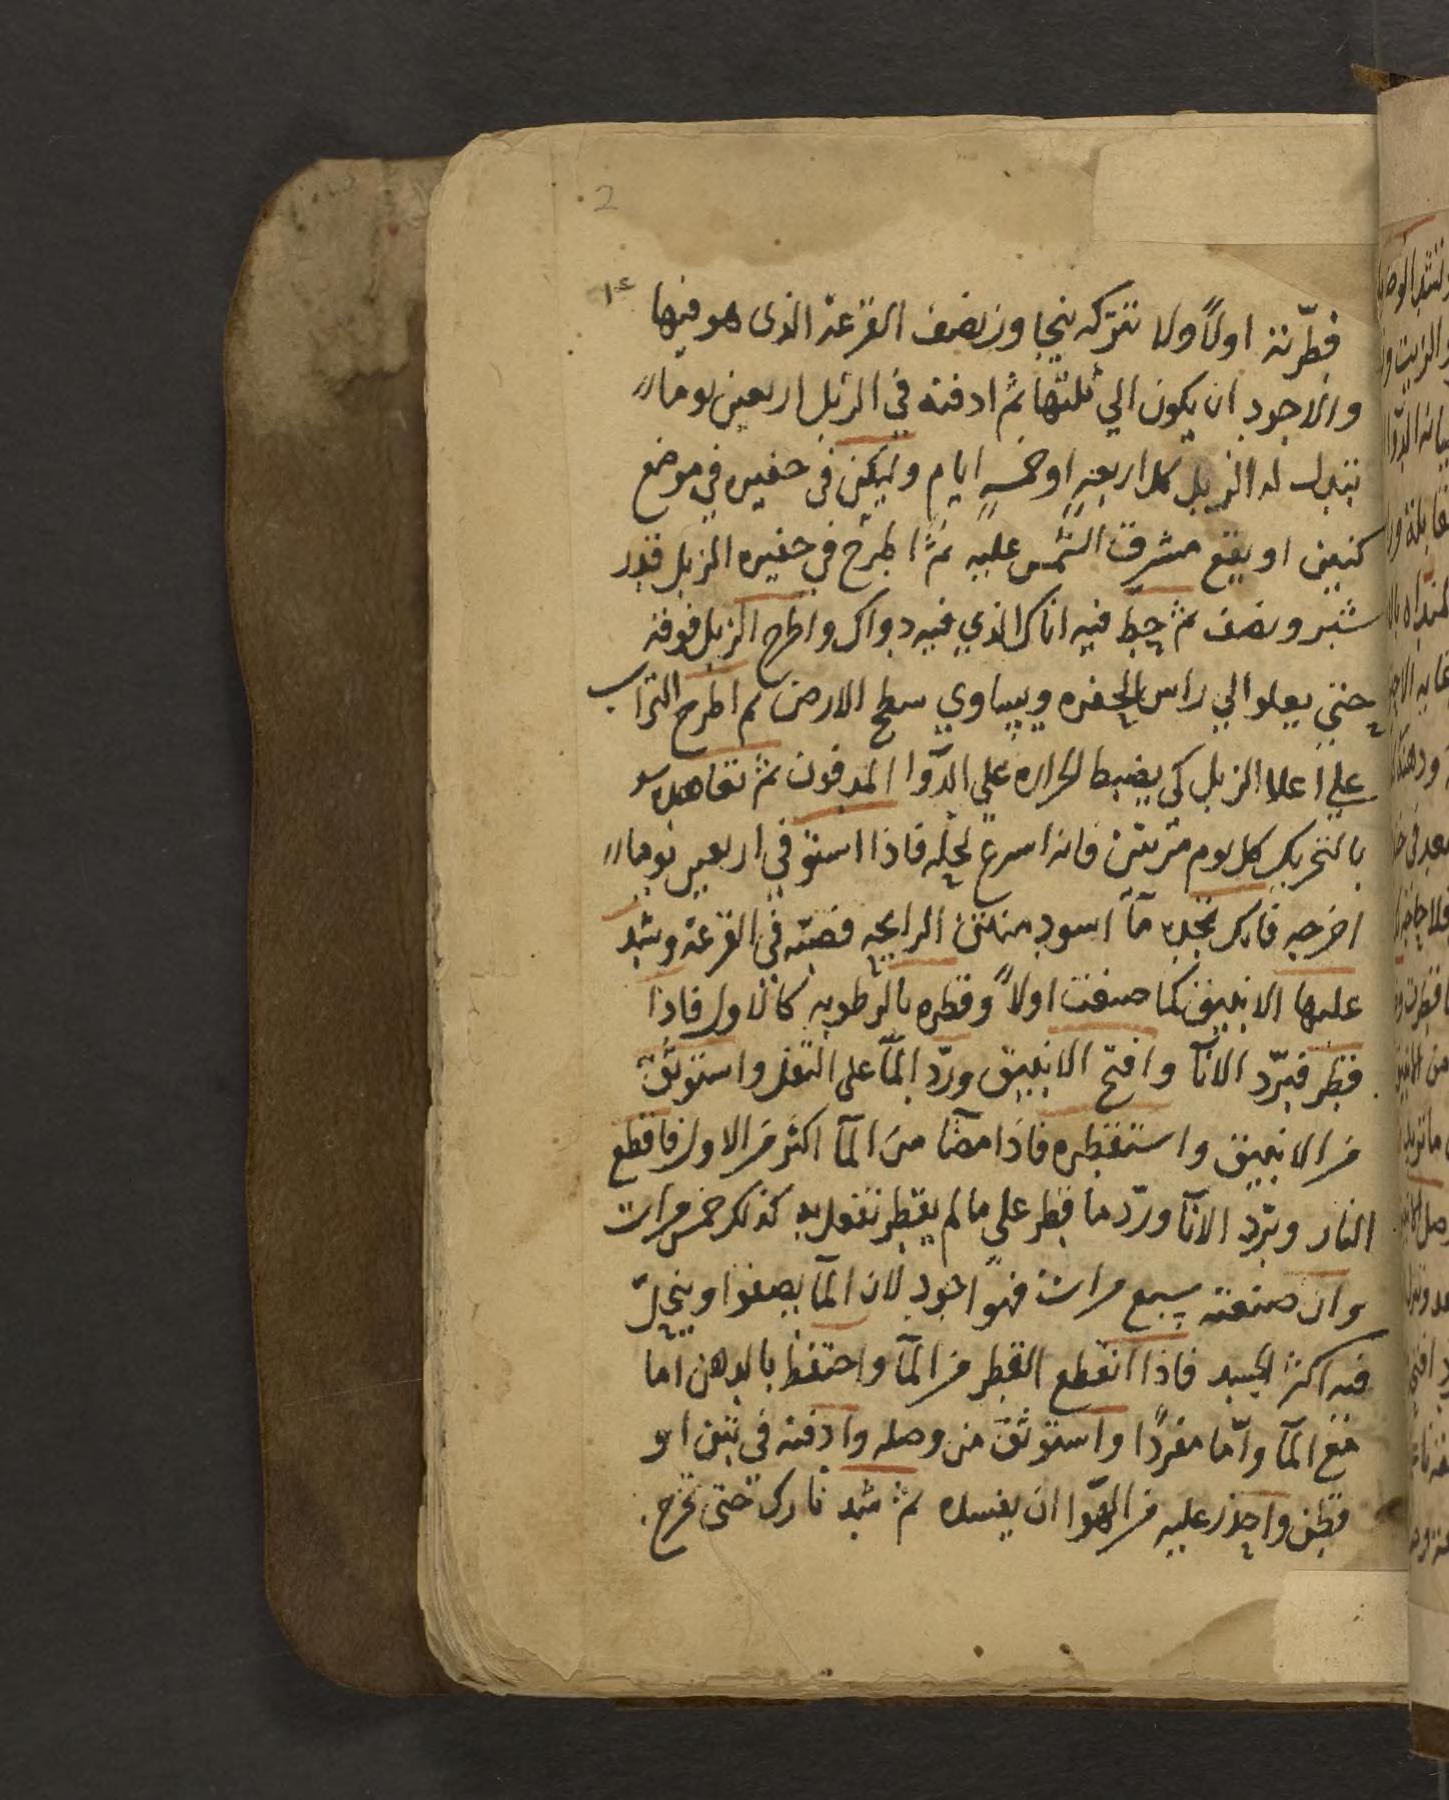 2
قطّرته اولاً ولا تتركه يتجاوز نصف القرعة الذى هو فيها
والاجود ان يكون الي ثلثها ثم ادفنه في الزبل اربعين يوما
تبدل له الزبل كل اربعة او خمسة ايام وليكن في حفيره في موضع
كنين او يقع مشرق الشمس عليه ثم اطرح في حفيره الزبل قدر
شبر ونصف ثم حط فيه اناك الذي فيه دواك واطرح الزبل فوقه
حتي يعلو الي راس الحفره ويساوي سطح الارض ثم اطرح التراب
علي اعلا الزبل كي يضبط الحراره علي الدّوا المدفون ثم تعاهده
بالتحريك كل يوم مرتين فانه اسرع لحله فاذا استوفي اربعين يوما
اخرجه فانك تجده مآ اسود منتن الرايحه فصبّه في القرعة وشد
عليها الانبيق كما صنعت اولاً وقطره بالرطوبه كالاول فاذا
قطر فبرّد الانآ وافتح الانبيق وردّ المآ على الثفل واستوثق
من الانبيق واستقطره فاذا مضا من المآ اكثر من الاول فاقطع
النار وبرّد الانآ وردّ ما قطر علي ما لم يقطر تفعل به كذلك خمس مرات
وان صنعته سبع مرات فهو اجود لان المآ يصفوا وينحلّ
فيه اكثر الجسد فاذا انقطع القطر من المآ واحتفظ بالدهن اما
مع المآ وامّا مفردًا واستوثق من وصله وادفنه في تبن او
قطن واحذر عليه من الهوّا ان يفسده ثم شد نارك حتى تخرج